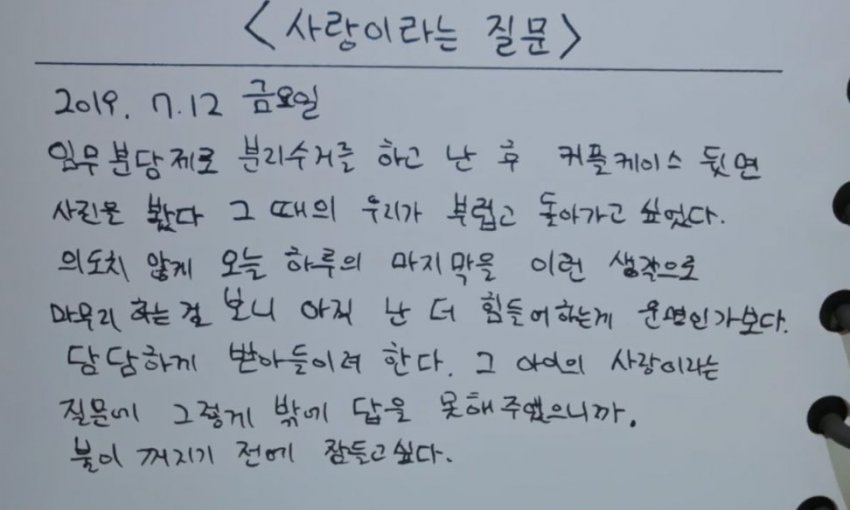 <사랑이라는 질문>
2019. 7.12 금요일
임무분담제로 분리수거를 하고 난 후 커플케이스 뒷면
사진을 봤다 그 때의 우리가 부럽고 돌아가고 싶었다.
의도치 않게 오늘 하루의 마지막을 이런 생각으로
마무리 하는걸 보니 아직 난 더 힘들어하는게 운명인가보다.
담담하게 받아들이려 한다. 그 아이의 사랑이라는
질문에 그렇게 밖에 답을 못해주었으니까.
불이 꺼지기 전에 잠들고싶다.